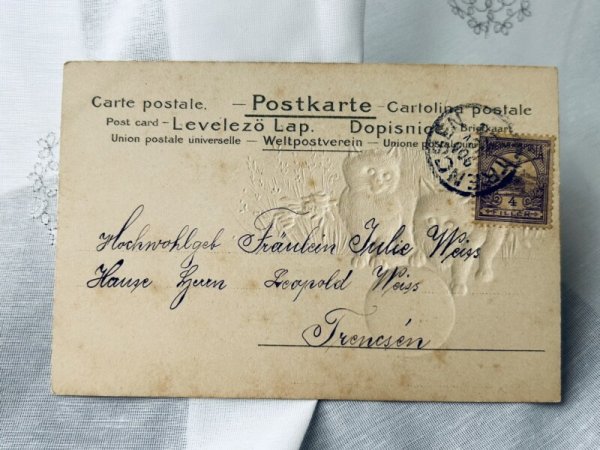 Carte postale. — Postkarte — Cartolina postale
Post card — Levelezö Lap. Dopisnice — Briefkaart
Union postale universelle — Weltpostverein — Unione postale
TRENCSÉN
4
FILLÉR
Hochwohlgeb Fräulein Julie Weiss
Hause Herrn Leopold Weiss
Trencsén